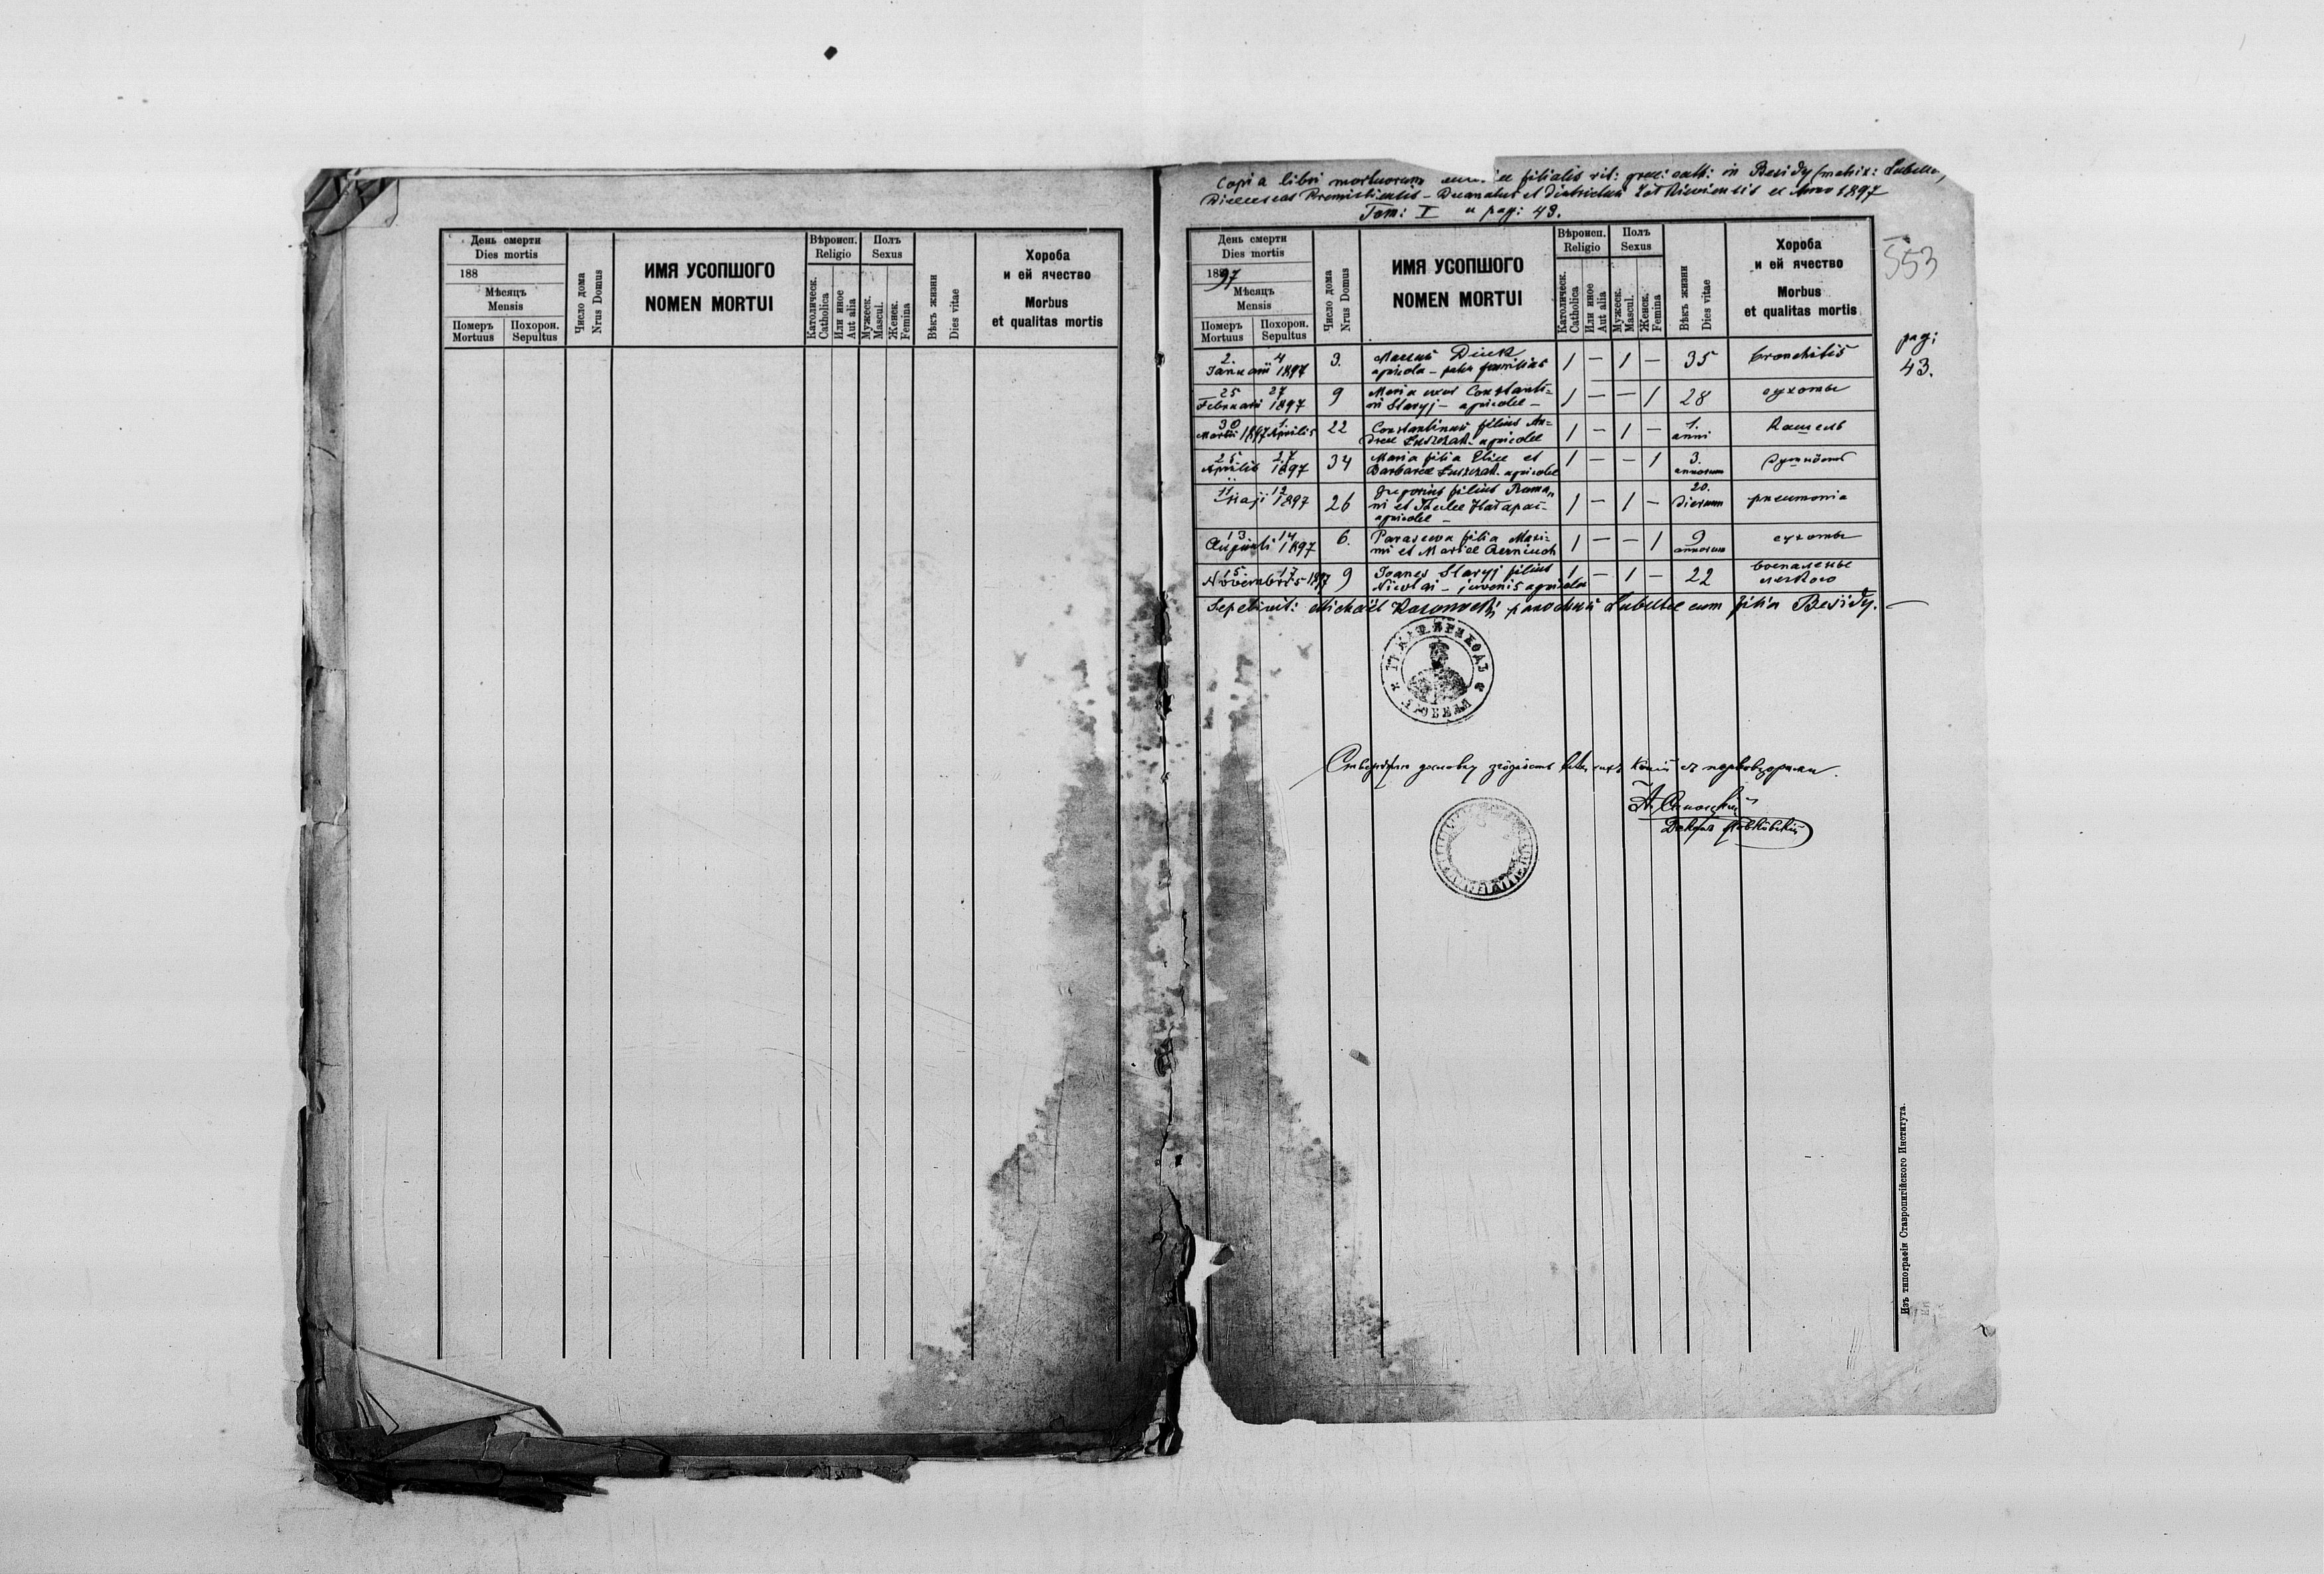 День смерти
Dies mortis
188
Мѣсяцъ
Mensis
Померъ
Mortuus
Похорон.
Sepultus
Число дома
Nrus Domus
ИМЯ УСОПШОГО
NOMEN MORTUI
Вѣроисп.
Religio
Католическ.
Catholica
Или иное
Aut alia
Полъ
Sexus
Мужеск.
Mascul.
Женск.
Femina
Вѣкъ жизни
Dies vitae
Хороба
и ей ячество
Morbus
et qualitas mortis
Copia libri mortuorum filialis rit: graec: cath: in Besidy (matrix:
Tom: I pag: 43.
День смерти
Dies mortis
1897
Мѣсяцъ
Mensis
Померъ
Mortuus
Похорон.
Sepultus
Число дома
Nrus Domus
ИМЯ УСОПШОГО
NOMEN MORTUI
Вѣроисп.
Religio
Католическ.
Catholica
Или иное
Aut alia
Полъ
Sexus
Мужеск.
Mascul.
Женск.
Femina
Вѣкъ жизни
Dies vitae
Хороба
и ей ячество
Morbus
et qualitas mortis
553
pag:
43.
2. 4 3. 1 — 1 — 35 bronchitis
Januarii 1897 agricola — pater familias
25 27 9 Maria uxor Constanti= 1 — — 1 28 сухоты
Februarii 1897 ni Staryj — agricolae —
30 1 22 Constantinus filius An= 1 — 1 — 1. Кашель
Martii 1897 Aprilis dreae agricolae anni
25 27 34 Maria filia Eliae et 1 — — 1 3.
Aprilis 1897 Barbarae agricolae annorum
11 12 26 filius Roma= 1 — 1 — 20. pneumonia
Maji 1897 ni et Theclae dierum
agricolae —
13 14 6. Parascewa filia Maxi= 1 — — 1 9 сухоты
Augusti 1897 mi et Mariae annorum
15 17 9 Joanes Staryj filius 1 — 1 — 22 воспаленье
Novembris 1897 Nicolai — juvenis agricola легкого
Sepelivit: Michael parochus cum filia Besidy. —
ГР. КАТ. ПРИХОДЪ
Изъ типографіи Ставропигійского Института.